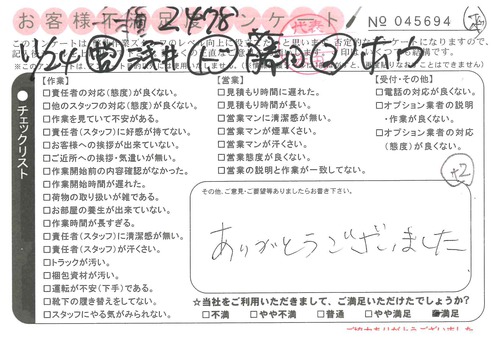 お客様不満足アンケート
№ 045694
チェックリスト
【作業】
□責任者の対応(態度)が良くない。
□他のスタッフの対応(態度)が良くない。
□作業を見ていて不安がある。
□責任者(スタッフ)に好感が持てない。
□お客様への挨拶が出来ていない。
□ご近所への挨拶・気遣いが無い。
□作業開始前の内容確認がなかった。
□作業開始時間が遅れた。
□荷物の取り扱いが雑である。
□お部屋の養生が出来ていない。
□作業時間が長すぎる。
□責任者(スタッフ)に清潔感が無い。
□責任者(スタッフ)が汗くさい。
□トラックが汚い。
□梱包資材が汚い。
□運転が不安(下手)である。
□靴下の履き替えをしてない。
□スタッフにやる気がみられない。
【営業】
□見積もり時間に遅れた。
□見積もり時間が長い。
□営業マンに清潔感が無い。
□営業マンが煙草くさい。
□営業マンが汗くさい。
□営業態度が良くない。
□営業の説明と作業が一致してない。
【受付・その他】
□電話の対応が良くない。
□オプション業者の説明
・作業が良くない。
□オプション業者の対応
(態度)が良くない。
+2
その他、ご意見・ご要望等ありましたらお書き下さい。
ありがとうございました
☆当社をご利用いただきまして、ご満足いただけたでしょうか?
□不満 □やや不満 □普通 □やや満足 ■満足
ご協力ありがとうございました